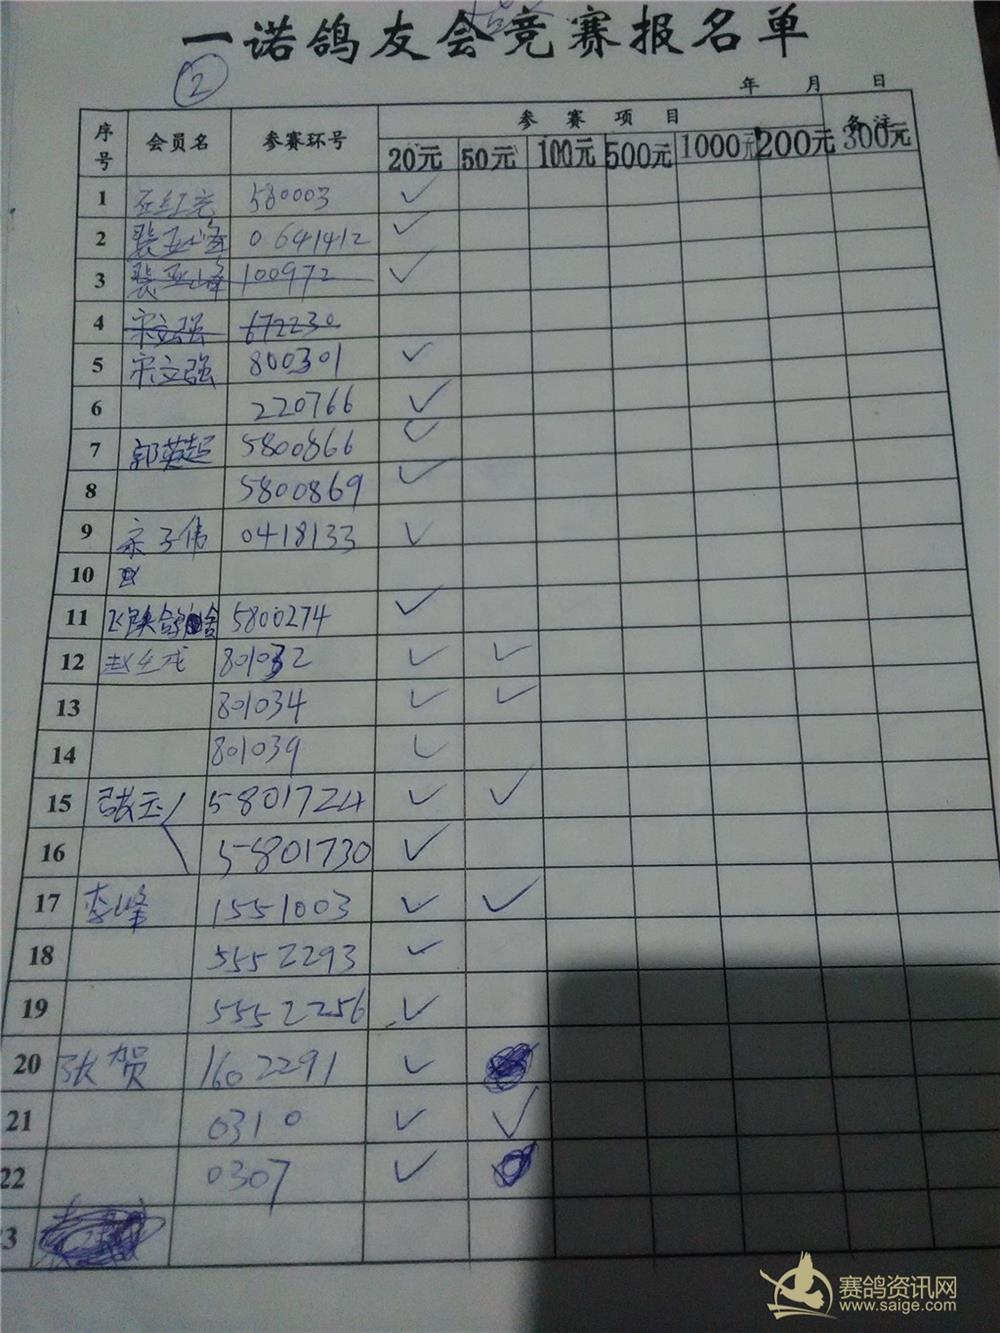 一诺鸽友会竞赛报名单
2
年 月 日
序号 会员名 参赛环号 参赛项目 备注
20元 50元 100元 500元 1000元 200元 300元
1 580003 ✓
2 裴亚峰 0641412 ✓
3 裴亚峰 100972 ✓
4 宋文强 672230
5 宋文强 800301 ✓
6 220766 ✓
7 郭英超 5800866 ✓
8 5800869 ✓
9 宗子伟 0418133 ✓
10
11 5800274 ✓
12 801032 ✓ ✓
13 801034 ✓ ✓
14 801039 ✓
15 张玉 5801724 ✓ ✓
16 5801730 ✓
17 李峰 1551003 ✓ ✓
18 5552293 ✓
19 5552256 ✓
20 张贺 1602291 ✓
21 0310 ✓ ✓
22 0307 ✓
23
赛鸽资讯网
www.saige.com